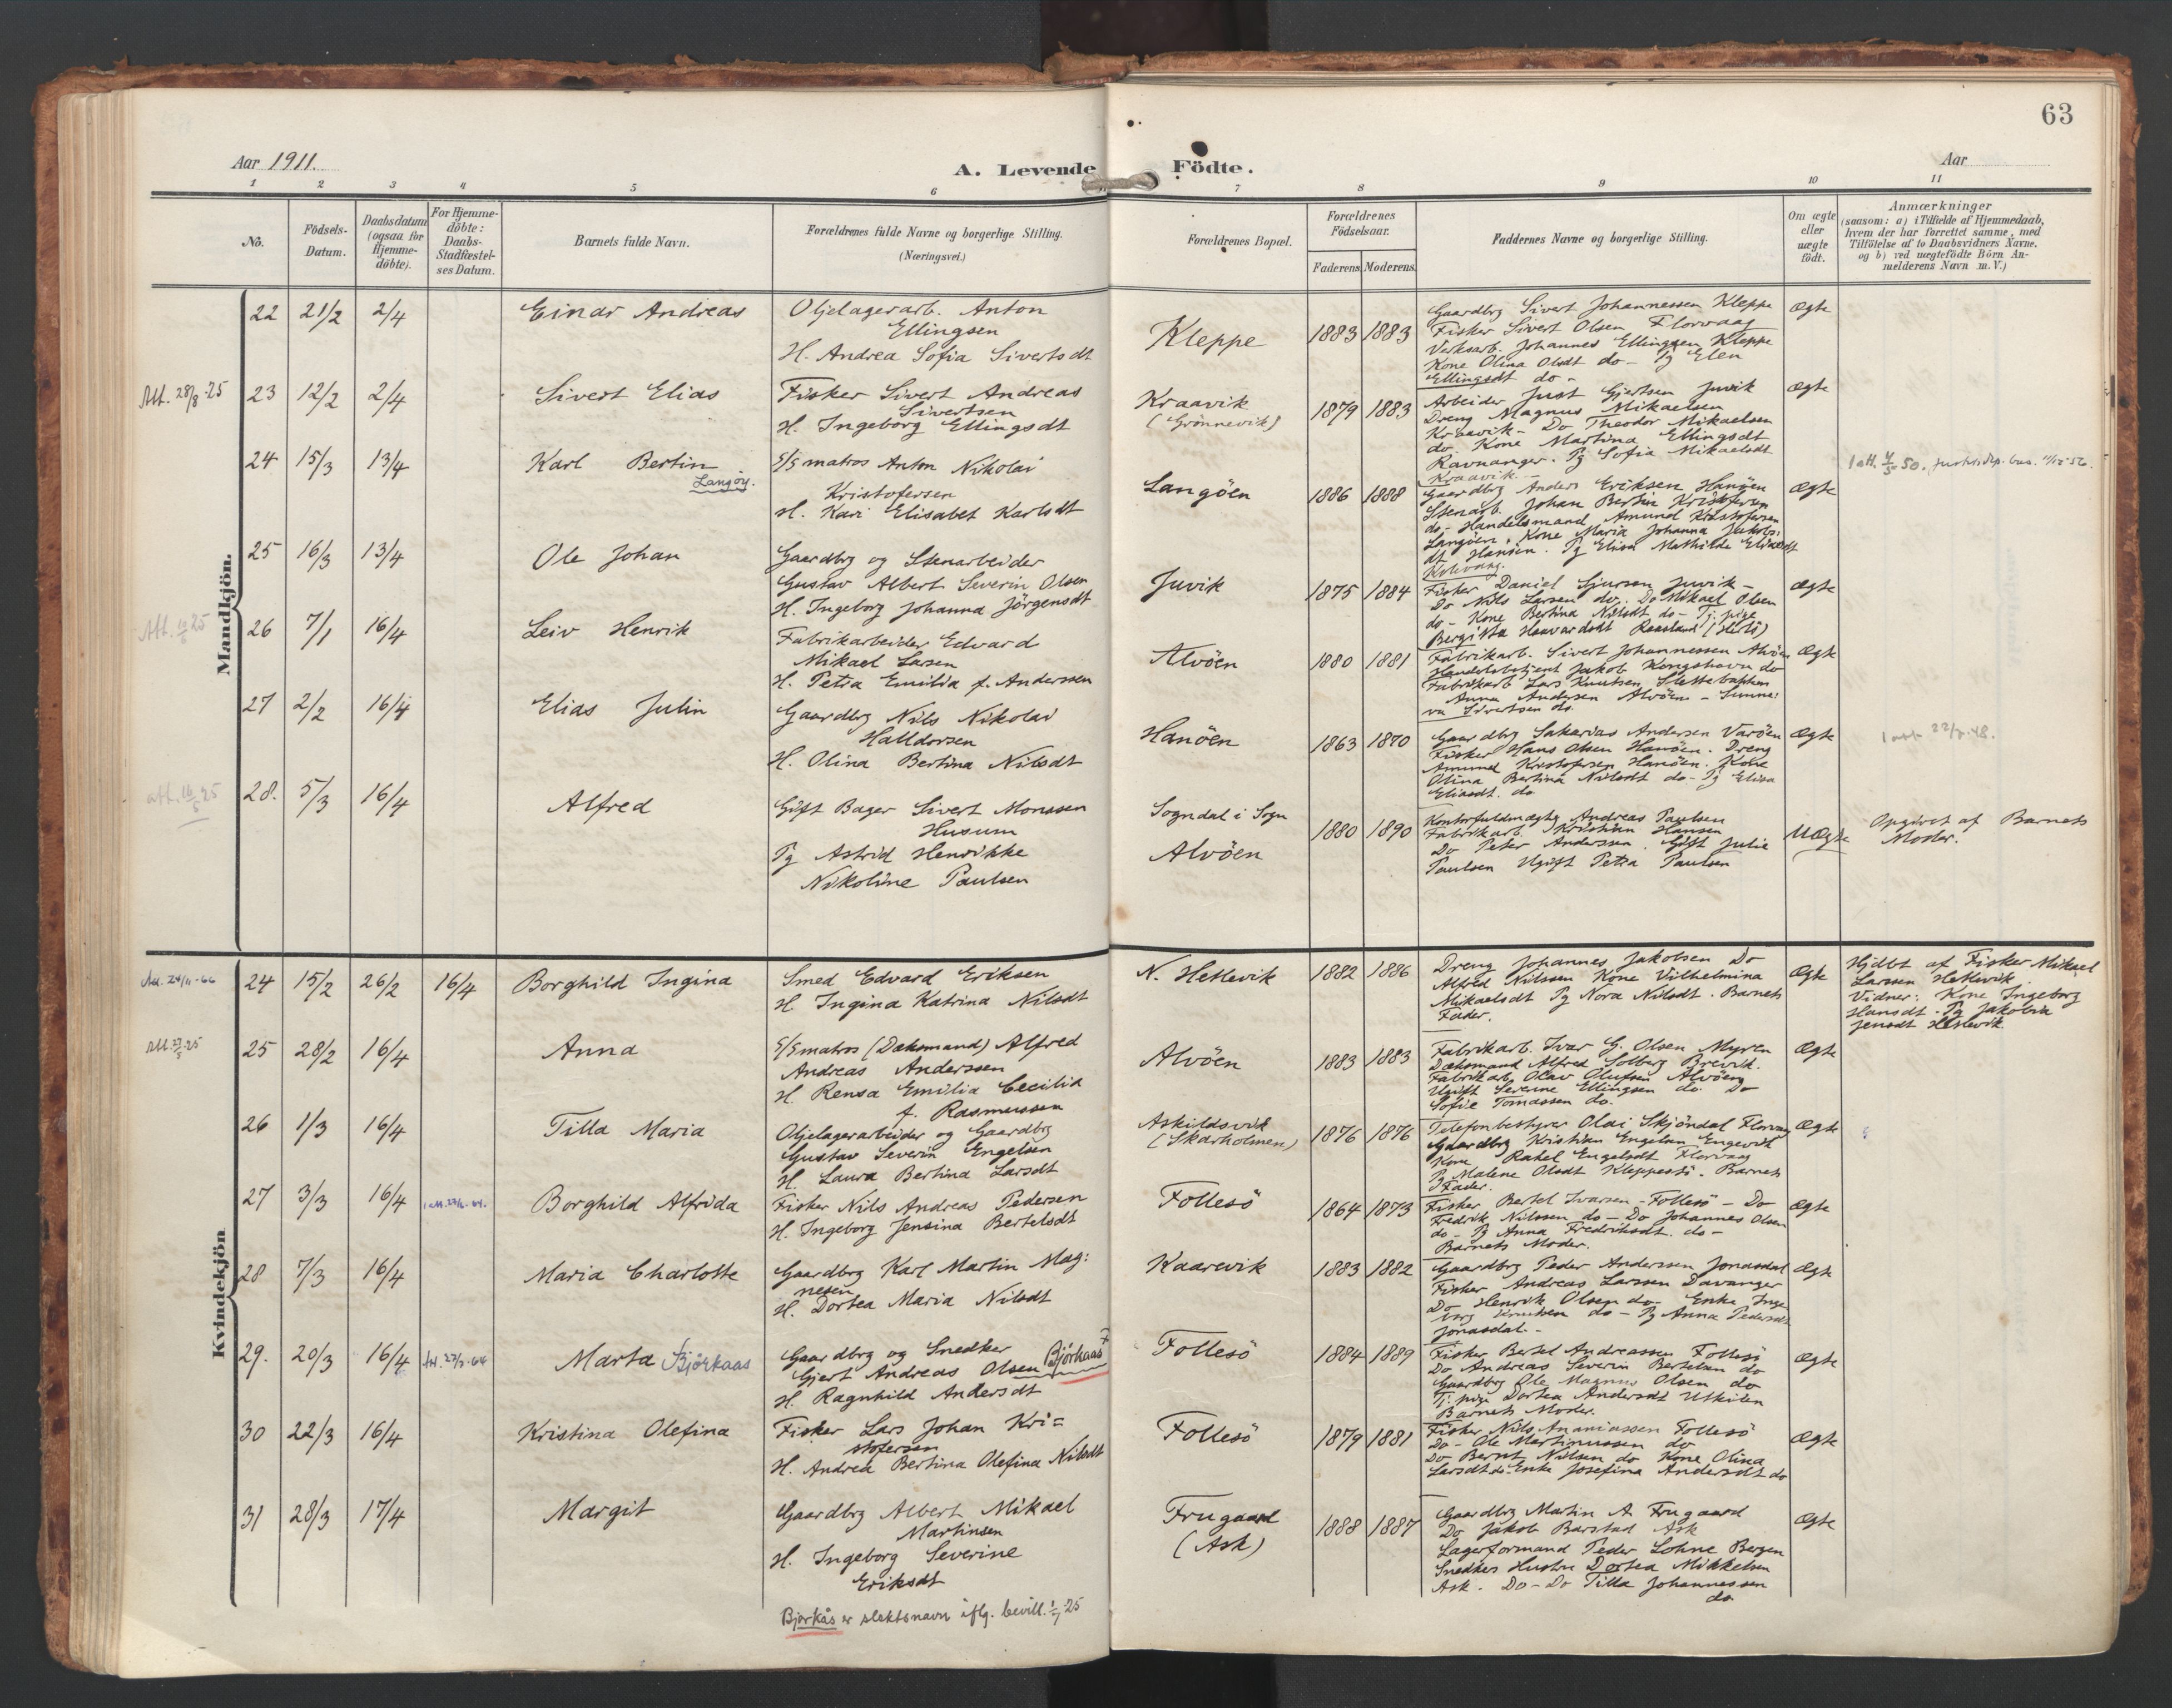 63
Aar 1911.
A. Levende Födte.
Aar
1 2 3 4 5 6 7 8 9 10 11
No.
Födsels-
Datum.
Daabsdatum
(ogsaa for
Hjemme-
döbte).
For Hjemme-
döbte:
Daabs-
Stadfæstel-
ses Datum.
Barnets fulde Navn.
Forældrenes fulde Navne og borgerlige Stilling.
(Næringsvei.)
Forældrenes Bopæl.
Forældrenes
Födselsaar.
Faderens. Moderens.
Faddernes Navne og borgerlige Stilling.
Om ægte
eller
uægte
födt.
Anmærkninger
(saasom: a) i Tilfælde af Hjemmedaab,
hvem der har forrettet samme, med
Tilföielse af to Daabsvidners Navne.
og b) ved uægtefödte Börn An-
melderens Navn m. V.)
Mandkjön.
22 21/2 2/4 Einar Andreas
Oljelagerarb. Anton
Ellingsen
H. Andrea Sofia Sivertsdt
Kleppe 1883 1883
Gaardbrg Sivert Johannessen Kleppe
Fisker Sivert Olsen Florvaag
Verksarb. Johannes Ellingsen Kleppe
Kone Olina Olsdt do - Pg Elen
Ellingsdt do -
Ægte
Att. 28/8-25
23 12/2 2/4 Sivert Elias
Fisker Sivert Andreas
Sivertsen
H. Ingeborg Ellingsdt
Kraavik
(Grönnevik)
1879 1883
Arbeider Just Gjertsen Juvik
Dreng Magnus Mikaelsen
Kraavik - Do Theodor Mikaelsen
do. Kone Martina Ellingsdt
Ravnanger. Pg Sofia Mikaelsdt
Kraavik
Ægte
24 15/3 13/4 Karl Bertin
Langöy.
S/S matros Anton Nikolai
Kristofersen
H. Kari Elisabet Karlsdt
Langöen 1886 1888
Gaardbrg Anders Eriksen Hanöen
Stenarb. Johan Bertin Kristofersen
do - Handelsmand Amund Kristofersen
Langöen. Kone Maria Johanna Jakobs:
dt Hanöen. Pg Elisa Mathilde
Ægte
25 16/3 13/4 Ole Johan
Gaardbrg og Stenarbeider
Gustav Albert Severin Olsen
H. Ingeborg Johanna Jörgensdt
Juvik 1875 1884
Fisker Daniel Sjursen Juvik -
Do Nils Larsen do. Do Mikael Olsen
do - Kone Bertina Nilsdt do - Tj. pige
Bergitta Haavardsdt
Ægte
Att. 25
26 7/1 16/4 Leiv Henrik
Fabrikarbeider Edvard
Mikael Larsen
H. Petra Emilia f. Anderssen
Alvöen 1880 1881
Fabrikarb. Sivert Johannessen Alvöen
Handelsbetjent Jakob Kongshavn do
Fabrikarb Lars Knutsen Slettebakken
Anna Andersen Alvöen - Sunni:
va Sivertsen do.
Ægte
27 2/2 16/4 Elias Julin
Gaardbrg Nils Nikolai
Halldorsen
H. Olina Bertina Nilsdt
Hanöen 1863 1870
Gaardbrg Sakarias Andersen Varöen
Fisker Hans Olsen Hanöen. Dreng
Amund Kristofersen Hanöen. Kone
Olina Bertina Nilsdt do - Pg Elisa
Eliasdt. do
Ægte
att. 25
28. 5/3 16/4 Alfred
Gift Bager Sivert Monssen
Husum
Pg Astrid Henrikke
Nikoline Paulsen
Sogndal i Sogn
Alvöen
1880 1890
Kontorfuldmægtig Andreas Paulsen
Fabrikarb. Kristian Hansen
Do Peter Anderssen. Gift Julie
Paulsen Ugift Petra Paulsen
Uægte
Opgivet af Barnets
Moder.
Kvindekjön
24 15/2 26/2 16/4 Borghild Ingina
Smed Edvard Eriksen
H Ingina Katrina Nilsdt
N. Hetlevik 1882 1886
Dreng Johannes Jakobsen Do
Alfred Nilssen Kone Vilhelmina
Mikaelsdt Pg Nora Nilsdt. Barnets
Fader.
Ægte
Hjdbt af Fisker Mikael
Larssen Hetlevik.
Vidner: Kone Ingeborg
Hansdt. Pg Jakobin
Jensdt Hetlevik
25 28/2 16/4 Anna
S/S matros (Dæksmand) Alfred
Andreas Anderssen
H. Rensa Emilia Cecilia
f. Rasmussen
Alvöen 1883 1883
Fabrikarb. Ivar G. Olsen Myren
Dæksmand Alfred Solberg Brevik.
Fabrikarb Olav Olufsen Alvöen
Ugift Severine Ellingsen do. Do
Sofie Tomassen do.
Ægte
26 1/3 16/4 Tilla Maria
Oljelagerarbeider og Gaardbrg
Gustav Severin Engelsen
H. Laura Bertina Larsdt
Askildsvik
(Skarholmen)
1876 1876
Telefonbestyrer Olai Skjöndal Florvaag
Gaardbrg Kristian Engelsen Engevik
Kone Rakel Engelsdt Florvaag
Pg Malene Olsdt Kleppestö. Barnets
Fader.
Ægte
27 3/3 16/4 Borghild Alfrida
Fisker Nils Andreas Pedersen
H. Ingeborg Jensina Bertelsdt
Follesö 1864 1873
Fisker Bertel Ivarsen - Follesö - Do
Fredrik Nilssen do - Do Johannes Olsen
do - Pg Anna Fredriksdt. do -
Barnets Moder.
Ægte
28 7/3 16/4 Maria Charlotte
Gaardbrg Karl Martin Mag:
nesen
H. Dortea Maria Nilsdt
Kaarevik 1883 1882
Gaardbrg Peder Anderssen Jonasdal
Fisker Andreas Larssen Davanger
Do Henrik Olsen do - Enke Inge
borg Knutsen do - Pg Anna Pedersdt
Jonasdal. -
Ægte
29. 20/3 16/4 Marta Björkaas
Gaardbrg og Snedker
Gjert Andreas Olsen Björkaas
H. Ragnhild Andersdt
Follesö 1884 1889
Fisker Bertel Andreassen Follesö
Do Andreas Severin Bertelsen do
Gaardbrg Ole Magnus Olsen do
Tj. pige Dortea Andersdt Utkilen
Barnets Moder.
Ægte
30 22/3 16/4 Kristina Olefina
Fisker Lars Johan Kri=
stofersen
H. Andrea Bertina Olefina Nilsdt
Follesö 1879 1881
Fisker Nils Ananiassen Follesö
Do - Ole Martinussen do
Do Bernt Nilsen do Kone Olina
Larsdt do - Enke Josefina Andersdt do
Ægte
31 28/3 17/4 Margit
Gaardbrg Albert Mikael
Martinsen
H. Ingeborg Severine
Eriksdt
Frugaard
(Ask)
1888 1887
Gaardbrg Martin A Frugaard
Do Jakob Barstad Ask
Lagerformand Peder Lohne Bergen
Snedkers Hustru Dortea Mikkelsen
Ask. Do - Do Tilla Johannessen
do
Ægte
Bjørkås er slektsnavn iflg. bevill. 1/7-25